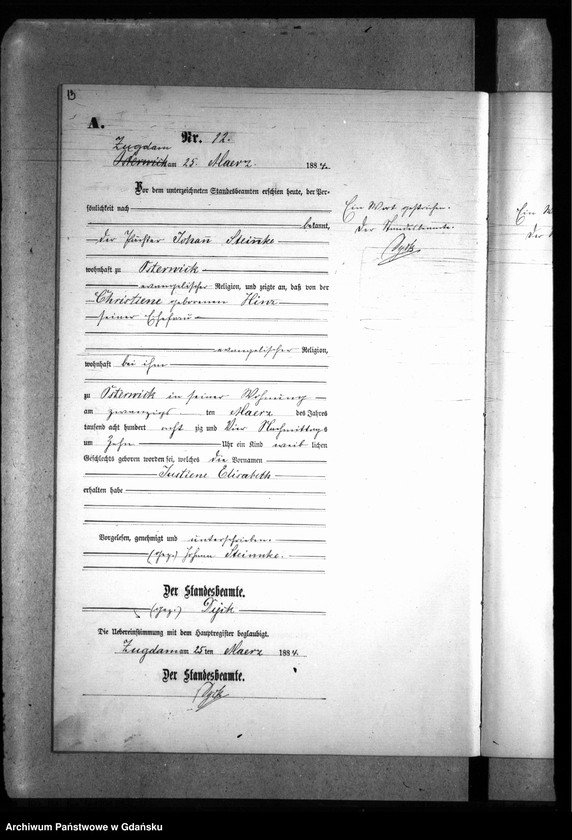 A.
Nr. 12.
Zugdam
Osterwick am 25. Maerz. 1884.
Vor dem unterzeichneten Standesbeamten erschien heute, der Per-
sönlichkeit nach
bekannt,
der Johan Steinke
wohnhaft zu Osterwick
evangelischer Religion, und zeigte an, daß von der
Christiene geborenen Hinz
seiner Ehefrau
evangelischer Religion,
wohnhaft bei ihm
zu Osterwick in seiner Wohnung
am zwanzigs ten Maerz des Jahres
tausend acht hundert acht zig und Vier Nachmittags
um Zehn Uhr ein Kind weib lichen
Geschlechts geboren worden sei, welches die Vornamen
Justiene Elisabeth
erhalten habe
Vorgelesen, genehmigt und unterschrieben.
(gez.) Johann Steinnke.
Der Standesbeamte.
(gez.) Dyck
Die Uebereinstimmung mit dem Hauptregister beglaubigt.
Zugdam am 25 ten Maerz 1884.
Der Standesbeamte.
Dyck
Ein Wort gestrichen.
Der Standesbeamte.
Dyck
Ein
Der
Archiwum Państwowe w Gdańsku